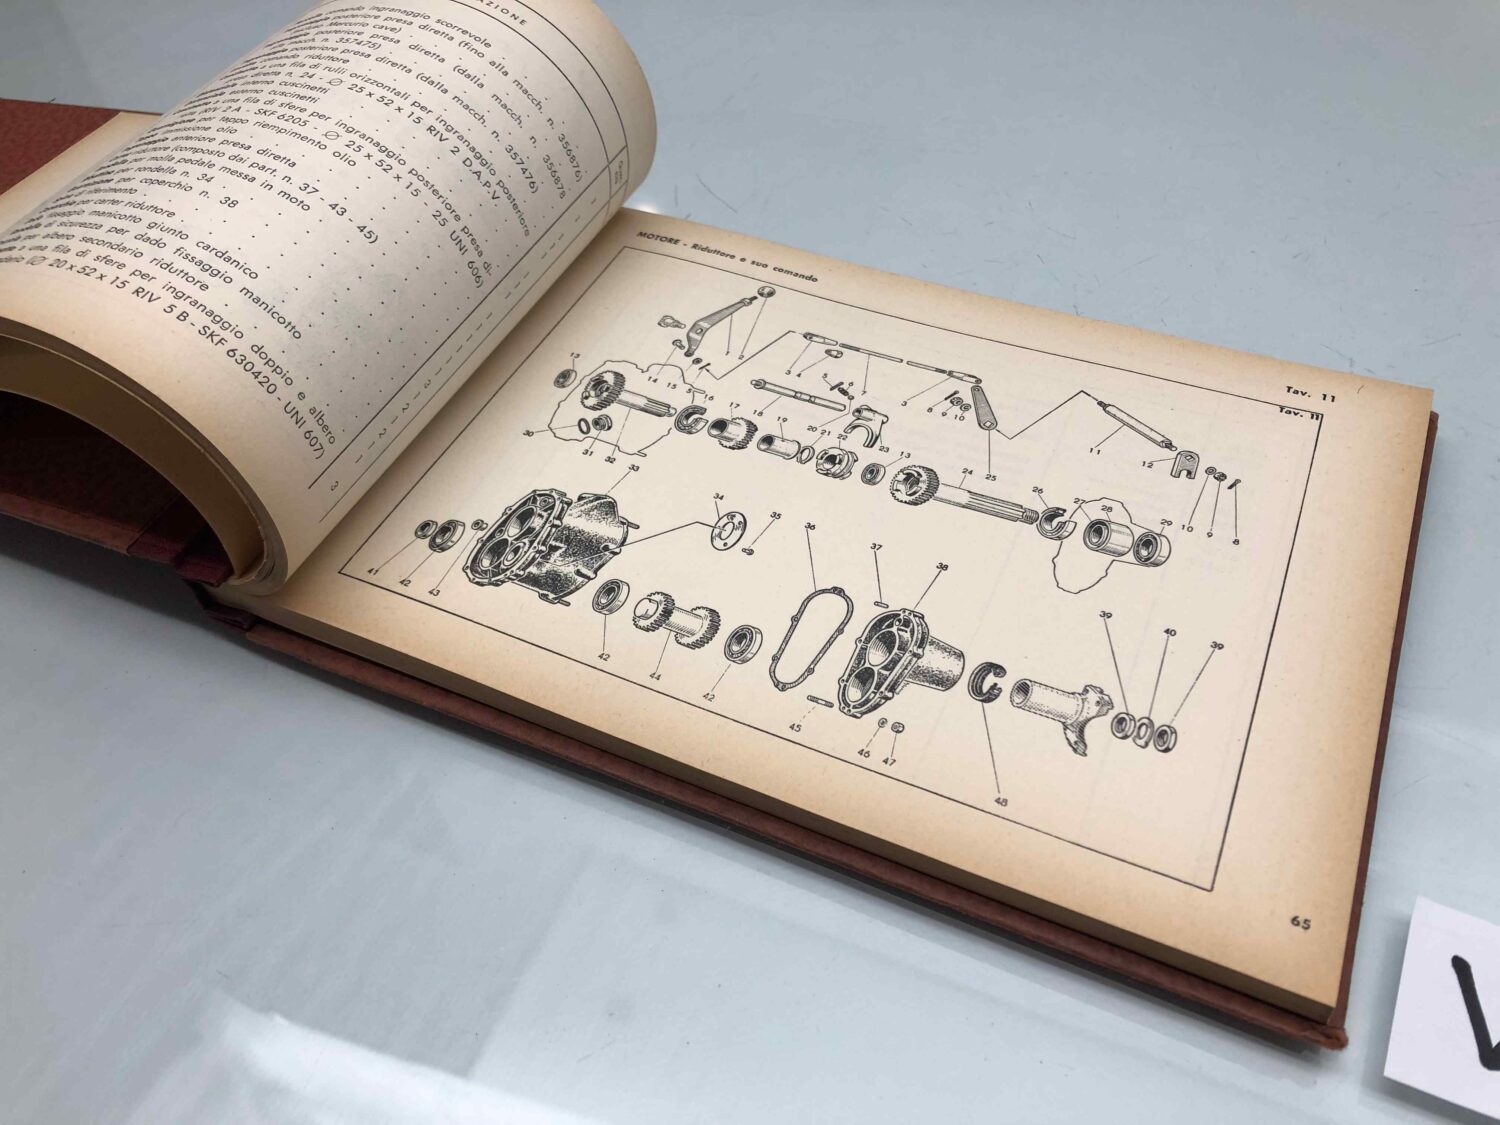 AZIONE
comando ingranaggio scorrevole
posteriore presa diretta (fino alla macch. n. 356876)
Mercurio cave)
posteriore presa diretta (dalla macch. n. 356878
macch. n. 357475)
posteriore presa diretta (dalla macch. n. 357476)
comando riduttore
a una fila di rulli orizzontali per ingranaggio posteriore
presa diretta n. 24 - Ø 25 x 52 x 15 RIV 2 D.A.P.V.
interno cuscinetti
esterno cuscinetti
a una fila di sfere per ingranaggio posteriore presa di-
(RIV 2 A - SKF 6205 - Ø 25 x 52 x 15 - 25 UNI 606)
per tappo riempimento olio
immissione olio
anteriore presa diretta
riduttore (composto dai part. n. 37 - 43 - 45)
per molla pedale messa in moto
per rondella n. 34
per coperchio n. 38
di riferimento
per carter riduttore
fissaggio manicotto giunto cardanico
di sicurezza per dado fissaggio manicotto
albero secondario riduttore
a una fila di sfere per ingranaggio doppio e albero
(Ø 20 x 52 x 15 RIV 5 B - SKF 630420 - UNI 607)
3
2
2
3
MOTORE - Riduttore e suo comando
Tav. 11
Tav. 11
1 2 3 4 7 3 8 9 10
13 14 15 5 16 17 18 19 20 21 22 23 13 24 25 11 12
5 6
30 31 32 33 34 35 36 26 27 28 29 10 9 8
41 42 43 37 38 39 40 39
42 44 42 45 46 47 48
65